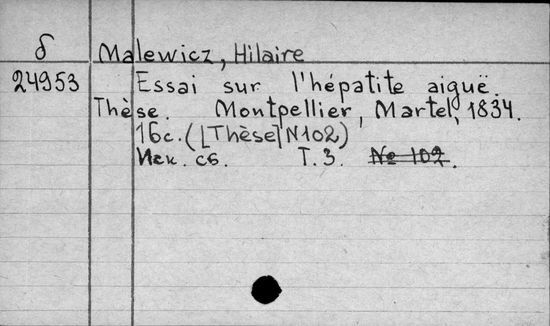 б Malewicz, Hilaire
24953 Essai sur l'hépatite aiguë.
Thèse. Montpellier, Martel, 1834.
16с. ([Thèse] N102)
Иск. сб. Т. 3. № 102.